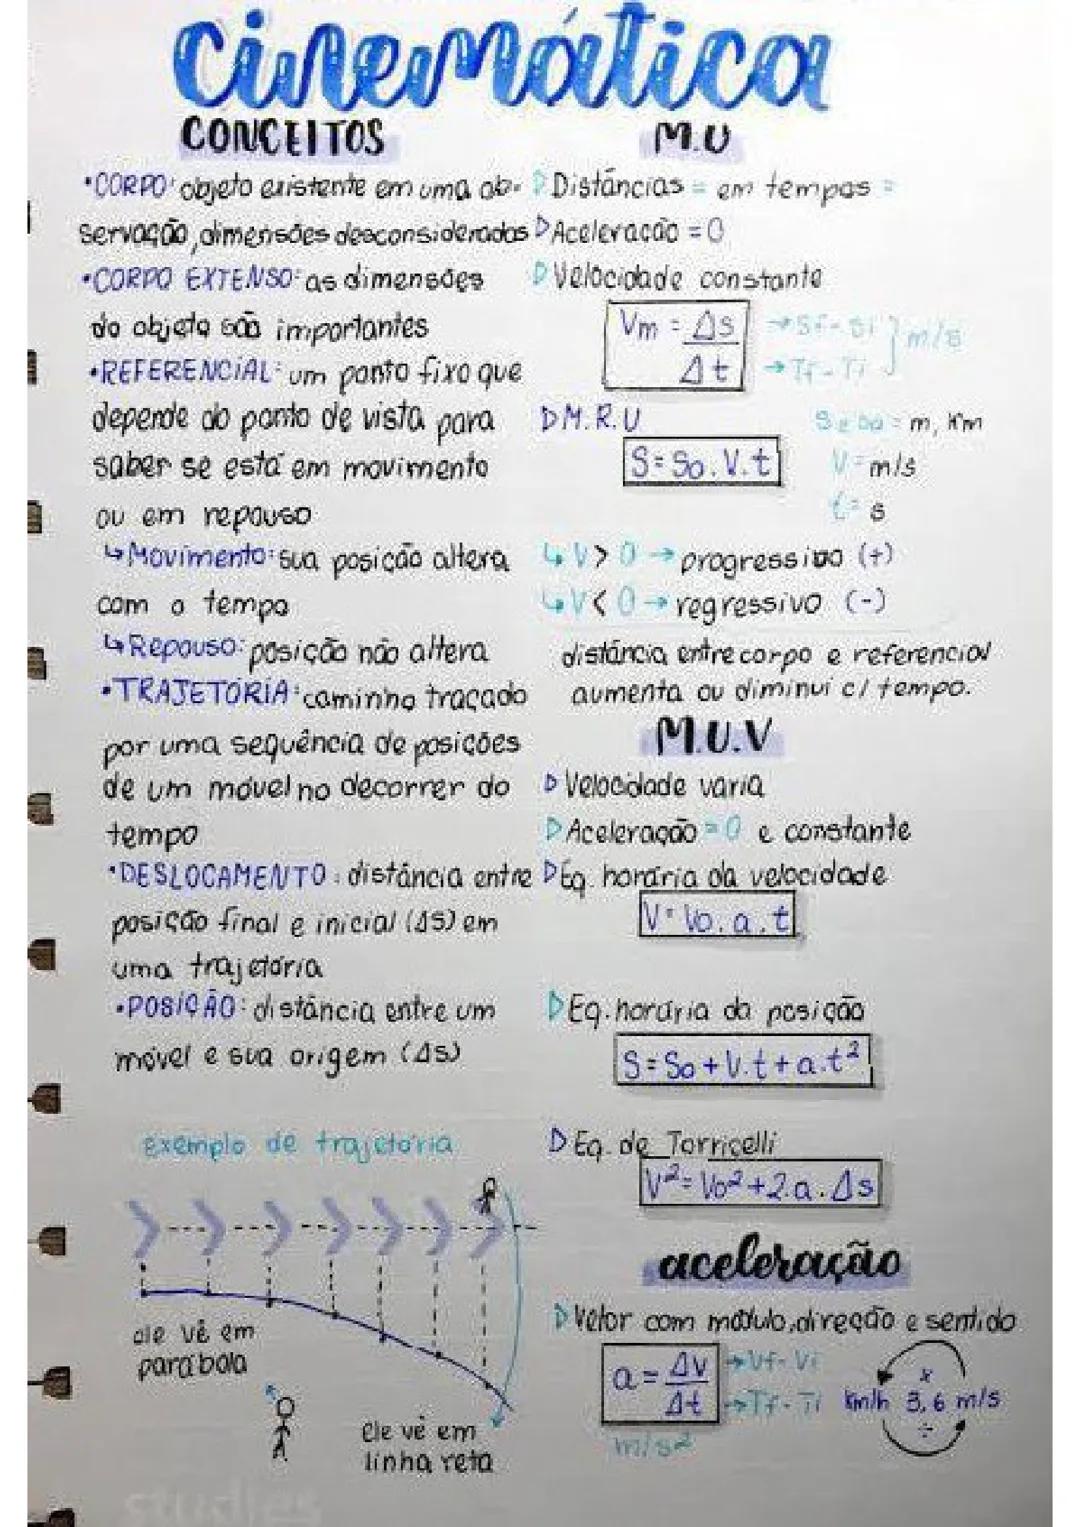 cinemática
CONCEITOS
•CORPO: objeto existente em uma ob-
servação, dimensões desconsideradas
•CORPO EXTENSO: as dimensões
do objeto são importantes
•REFERENCIAL: um ponto fixo que
depende do ponto de vista para
saber se está em movimento
ou em repouso
↳Movimento: sua posição altera
com o tempo
↳Repouso: posição não altera
•TRAJETÓRIA: caminho traçado
por uma sequência de posições
de um móvel no decorrer do
tempo
•DESLOCAMENTO: distância entre
posição final e inicial (ΔS) em
uma trajetória
•POSIÇÃO: distância entre um
móvel e sua origem (ΔS)
exemplo de trajetória
ele vê em
parábola
Ele vê em
linha reta
studies
M.U
▷Distâncias = em tempos =
▷Aceleração = 0
▷Velocidade constante
Vm = ΔS →Sf-Si } m/s
Δt →Tf-Ti
▷M.R.U
S e So = m, Km
S=So.V.t
V=m/s
t=s
↳V>0→progressivo (+)
↳V<0→regressivo (-)
distância entre corpo e referencial
aumenta ou diminui c/ tempo.
M.U.V
▷Velocidade varia
▷Aceleração=0 e constante
▷Eq. horária da velocidade
V=Vo.a.t
▷Eq. horária da posição
S=So+V.t+a.t²
▷Eq. de Torricelli
V²=Vo²+2.a.Δs
aceleração
▷Vetor com módulo, direção e sentido
a=ΔV →Vf-Vi
Δt →Tf-Ti
m/s²
x
km/h 3,6 m/s
÷